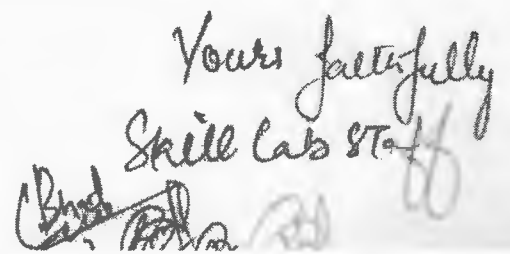 Yours faithfully
Skill Lab STaff